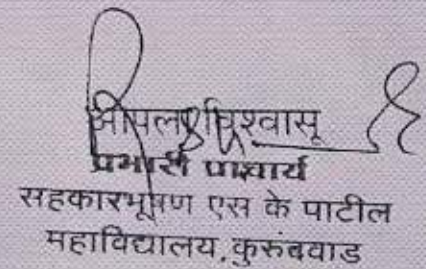 प्रभारी प्राचार्य
सहकारभूषण एस के पाटील
महाविद्यालय,कुरुंदवाड